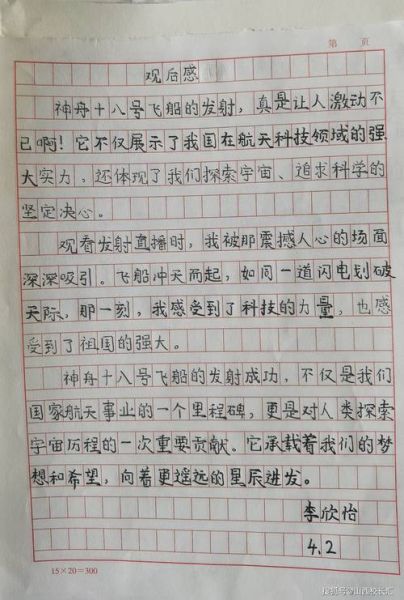 第 页
观后感
神舟十八号飞船的发射，真是让人激动不
已啊！它不仅展示了我国在航天科技领域的强
大实力，还体现了我们探索宇宙、追求科学的
坚定决心。
观看发射直播时，我被那震撼人心的场面
深深吸引。飞船冲天而起，如同一道闪电划破
天际，那一刻，我感受到了科技的力量，也感
受到了祖国的强大。
神舟十八号飞船的发射成功，不仅是我们
国家航天事业的一个里程碑，更是对人类探索
宇宙历程的一次重要贡献。它承载着我们的梦
想和希望，向着更遥远的星辰进发。
李欣怡
4.2
15×20=300
搜狐号@山西校长汇